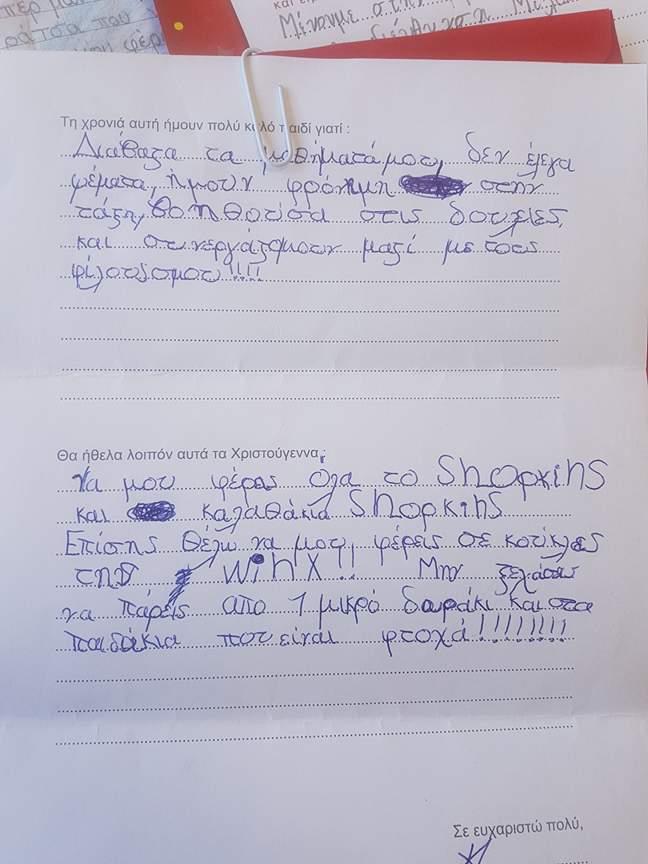 Μείναμε στην
Τη χρονιά αυτή ήμουν πολύ καλό παιδί γιατί :
Διάβαζα τα μαθήματά μου, δεν έλεγα
ψέματα, ήμουν φρόνιμη στην
τάξη, βοηθούσα στις δουλειές,
και συνεργάζομουν μαζί με τους
φίλους μου!!!!
Θα ήθελα λοιπόν αυτά τα Χριστούγεννα,
Να μου φέρεις όλα το Shopkins
και καλαθάκια Shopkins
Επίσης θέλω να μου φέρεις σε κούκλες
της Winx!! Μην ξεχάσεις
να πάρεις απο 1 μικρό δωράκι και στα
παιδάκια που είναι φτοχά!!!!!!!!!
Σε ευχαριστώ πολύ,